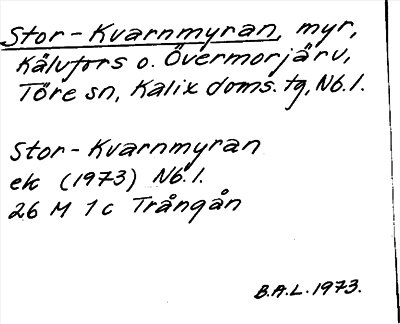 Stor-Kvarnmyran, myr,
Kälvfors o. Övermorjärv,
Töre sn, Kalix doms. tg, Nb. l.
Stor-Kvarnmyran
ek (1973) Nb. l.
26 M 1c Trångån
B.A.L. 1973.